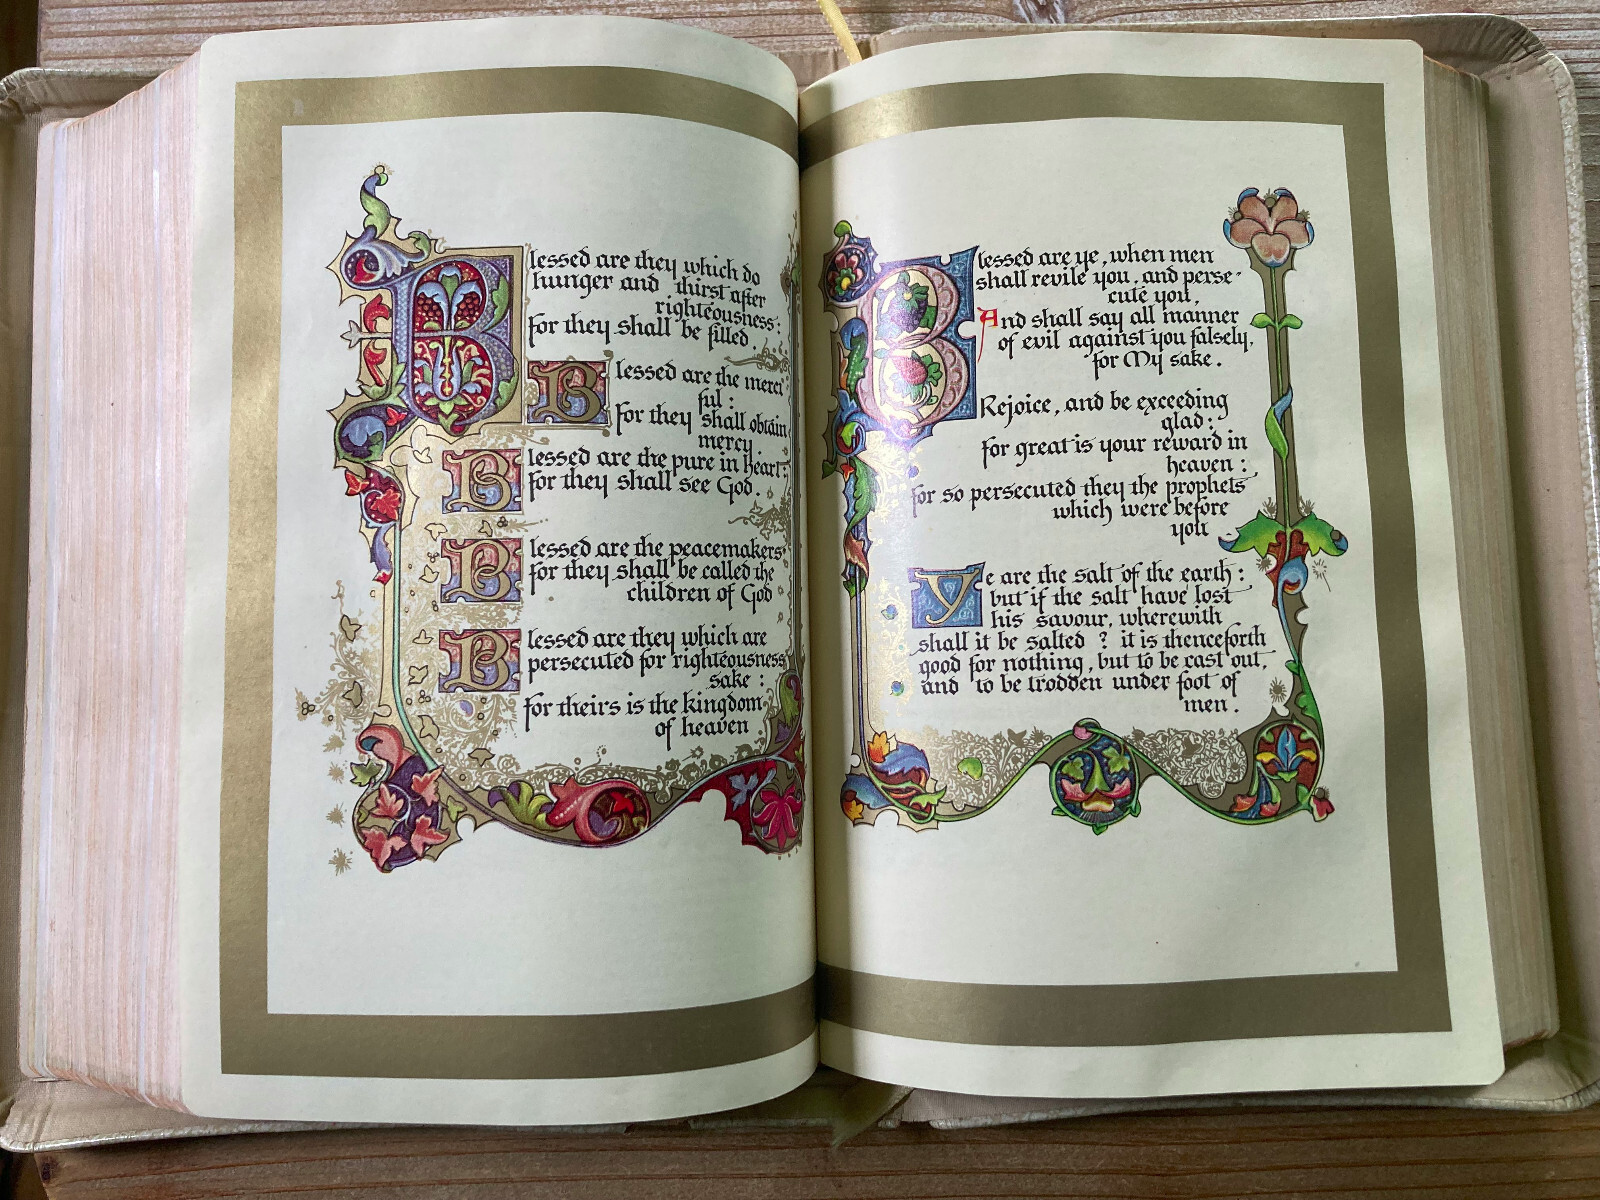 Blessed are they which do
hunger and thirst after
righteousness:
for they shall be filled.
Blessed are the merci
ful:
For they shall obtain
mercy.
Blessed are the pure in heart:
for they shall see God.
Blessed are the peacemakers
for they shall be called the
children of God
Blessed are they which are
persecuted for righteousness
sake:
for theirs is the kingdom
of heaven
Blessed are ye, when men
shall revile you, and perse-
cute you,
And shall say all manner
of evil against you falsely,
for My sake.
Rejoice, and be exceeding
glad:
for great is your reward in
heaven:
for so persecuted they the prophets
which were before
you
Ye are the salt of the earth:
but if the salt have lost
his savour, wherewith
shall it be salted? it is thenceforth
good for nothing, but to be cast out,
and to be trodden under foot of
men.